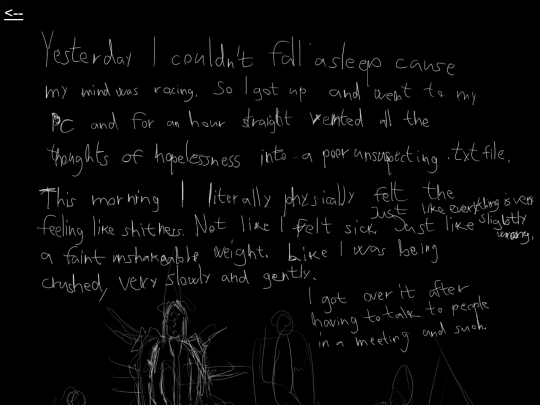 <--
Yesterday I couldn't fall asleep cause
my mind was racing. So I got up and went to my
PC and for an hour straight vented all the
thoughts of hopelessness into a poor unsuspecting .txt file.
This morning I literally physically felt the
feeling like shitness. Not like I felt sick. Just like
Just like everything is very
slightly
wrong.
a faint unshakeable weight. Like I was being
crushed, very slowly and gently.
I got over it after
having to talk to people
in a meeting and such.